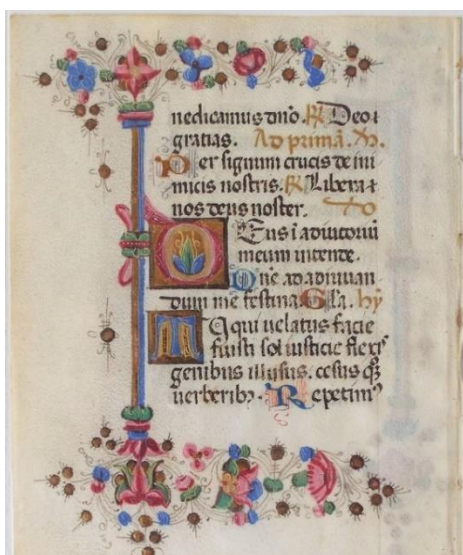 nedicamus dño. ℟ Deo ⁊
gratias. Ad primã. ℣.
Per signum crucis de ini
micis nostris. ℟ Libera ⁊
nos deus noster.
Deus ĩ adiutoriũ
meum intende.
Dñe ad adiuuan
dum me festina Gla. hỹ
Tu qui uelatus facie
fuisti sol iusticie flexis
genibus illusus. cesus qȝ
uerberibȝ. Repetimꝰ